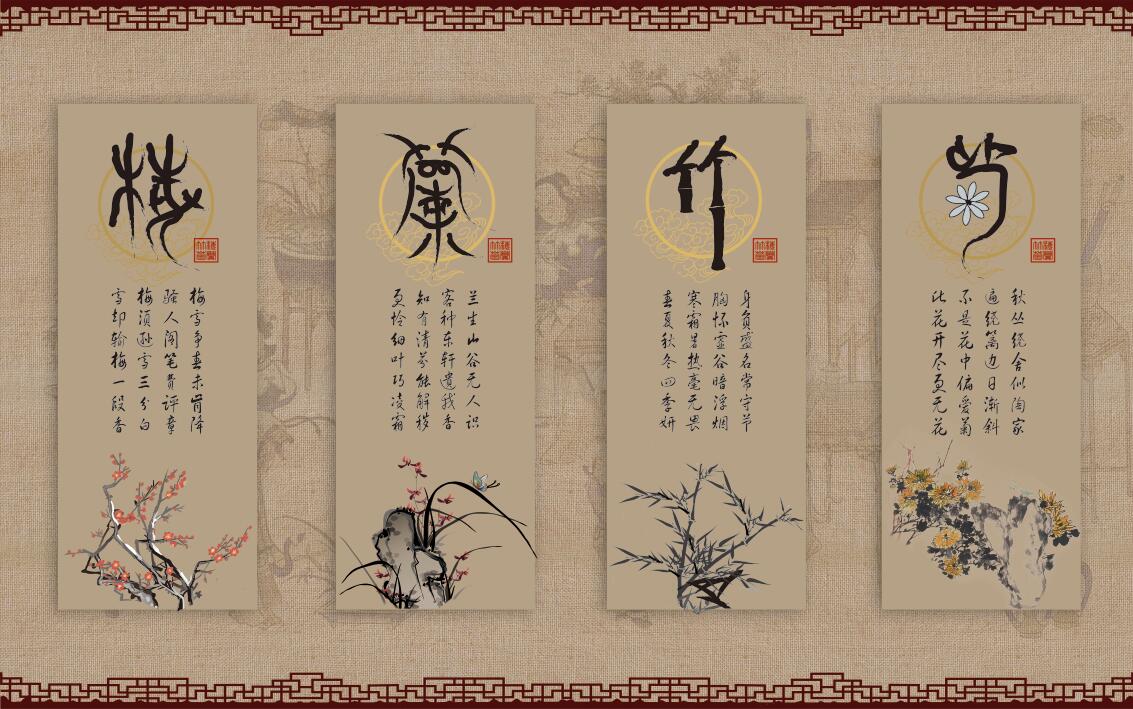 梅
梅雪争春未肯降
骚人阁笔费评章
梅须逊雪三分白
雪却输梅一段香
蘭
兰生山谷无人识
客种东轩遗我香
知有清芬能解秽
更怜细叶巧凌霜
竹
身负盛名常守节
胸怀虚谷暗浮烟
寒霜暑热毫无畏
春夏秋冬四季妍
菊
秋丛绕舍似陶家
遍绕篱边日渐斜
不是花中偏爱菊
此花开尽更无花